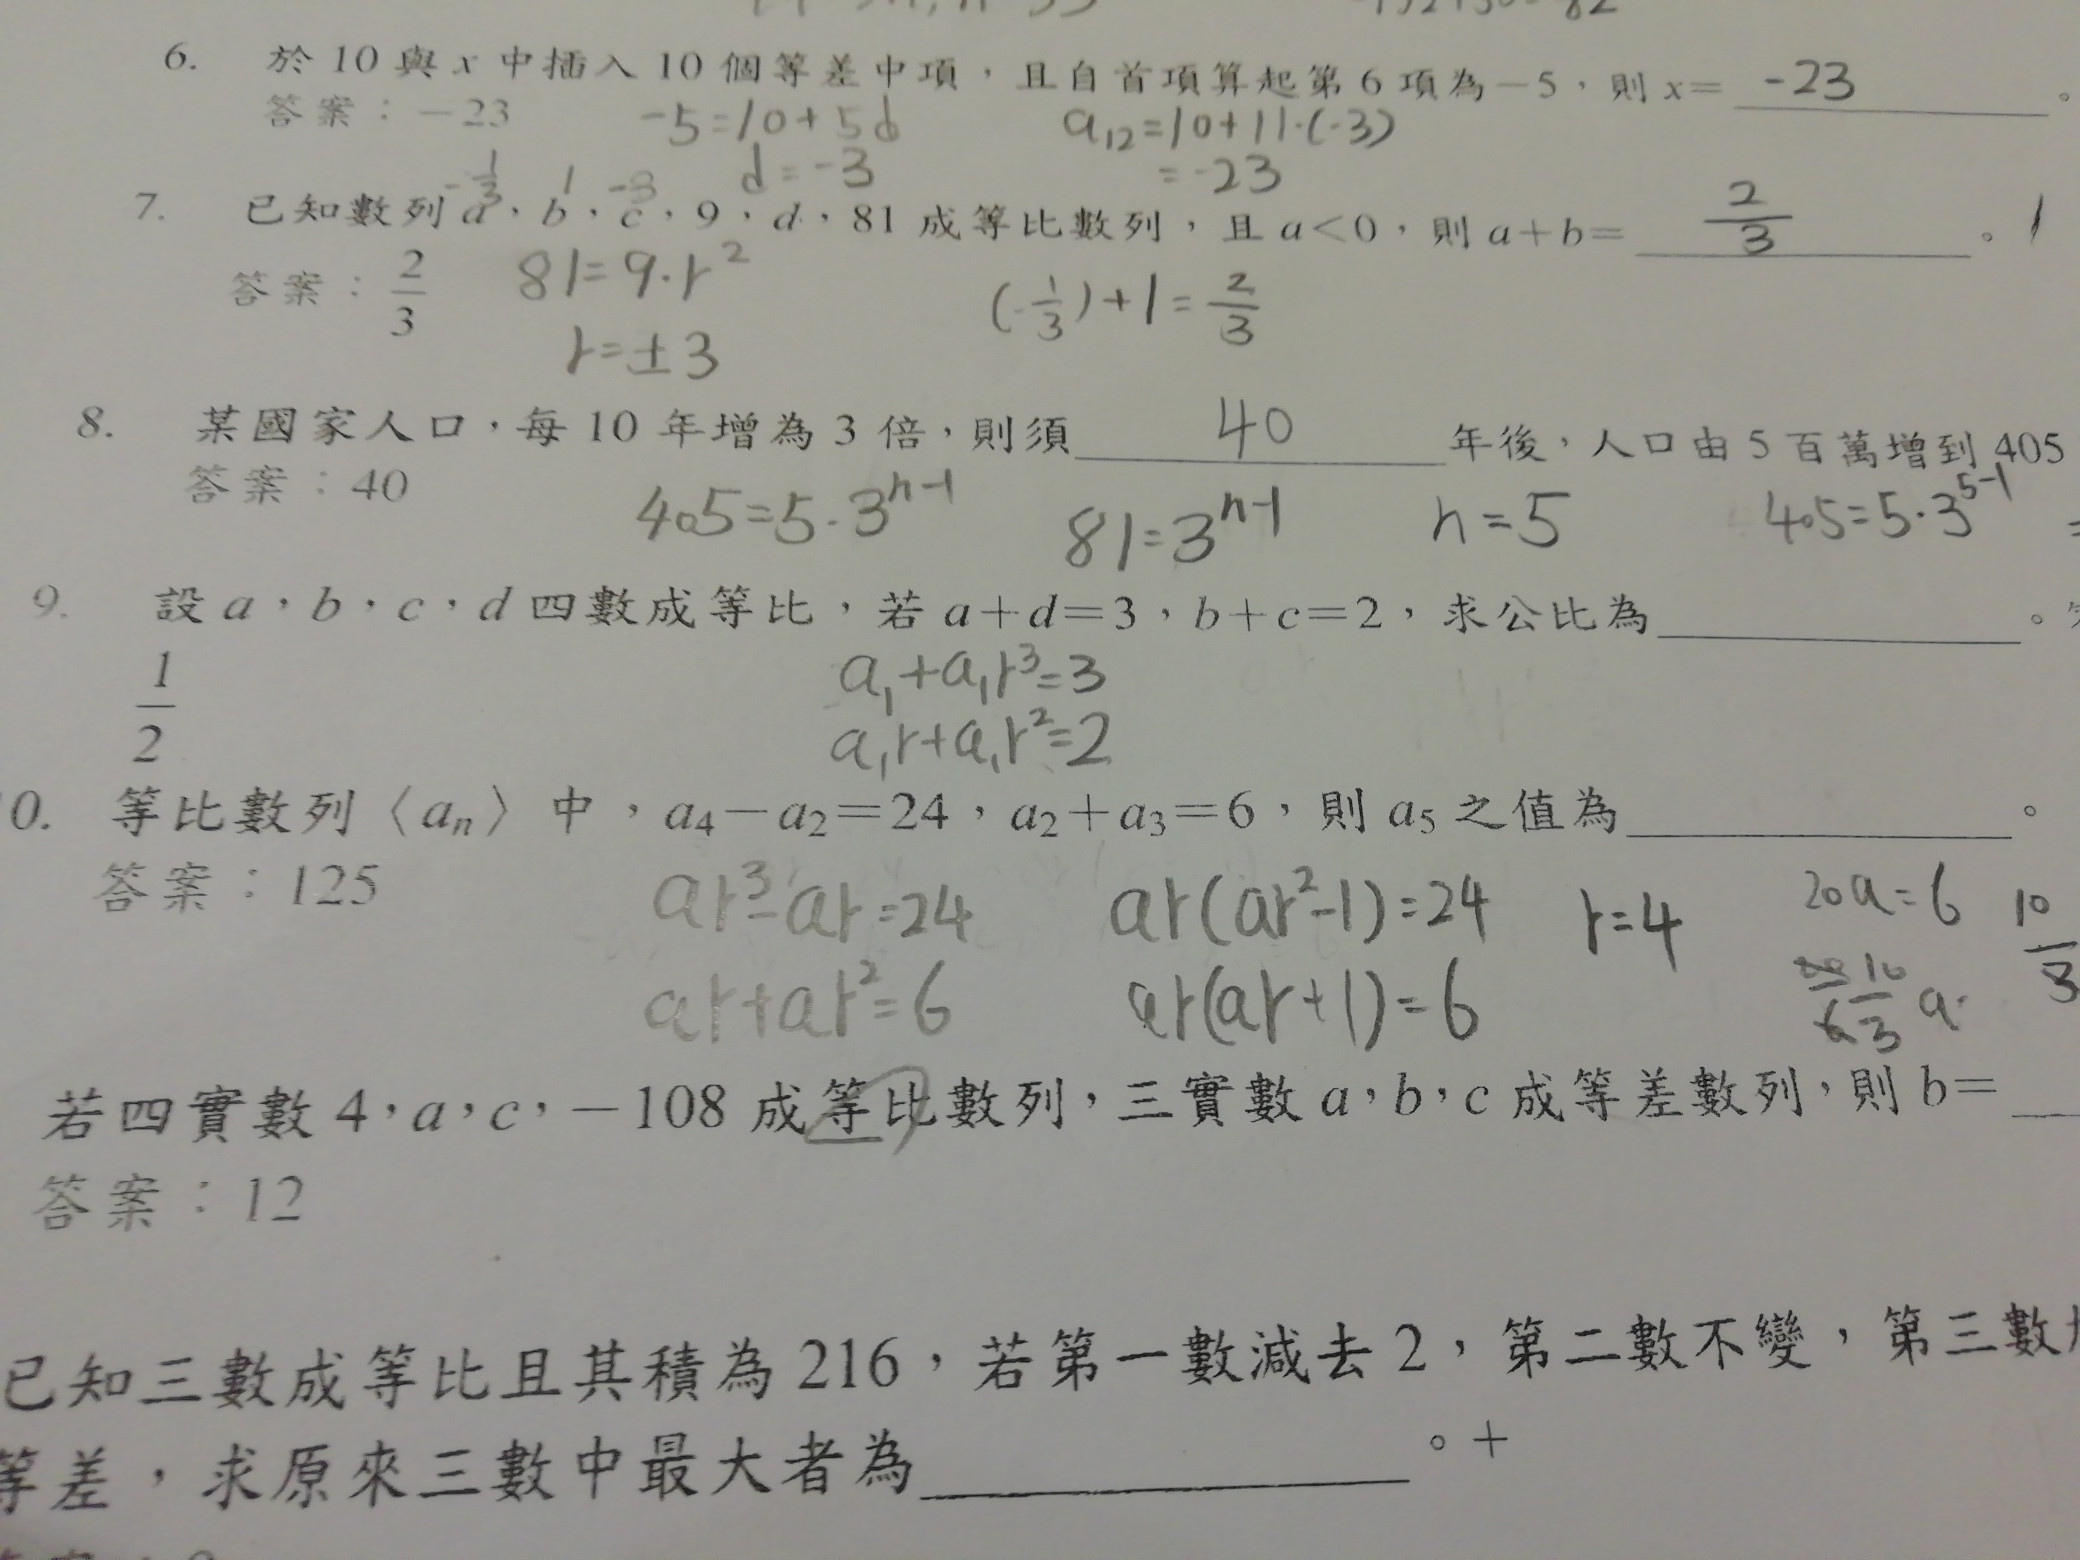 6. 於 10 與 x 中插入 10 個等差中項，且自首項算起第 6 項為－5，則 x= -23 。
答案：－23 -5=10+5d a₁₂=10+11·(-3)
d=-3 =-23
-1/3 1 -3
7. 已知數列 a，b，c，9，d，81 成等比數列，且 a<0，則 a+b= 2/3 。
答案：2/3 81=9·r² (-1/3)+1=2/3
r=±3
8. 某國家人口，每 10 年增為 3 倍，則須 40 年後，人口由 5 百萬增到 405
答案：40 405=5·3ⁿ⁻¹ 81=3ⁿ⁻¹ n=5 405=5·3⁵⁻¹
9. 設 a，b，c，d 四數成等比，若 a+d=3，b+c=2，求公比為 。
1/2 a₁+a₁r³=3
a₁r+a₁r²=2
0. 等比數列〈aₙ〉中，a₄－a₂=24，a₂+a₃=6，則 a₅ 之值為 。
答案：125 ar³-ar=24 ar(ar²-1)=24 r=4 20a=6 10/3
ar+ar²=6 ar(ar+1)=6
若四實數 4，a，c，－108 成等比數列，三實數 a，b，c 成等差數列，則 b=
答案：12
已知三數成等比且其積為 216，若第一數減去 2，第二數不變，第三數
等差，求原來三數中最大者為 。+